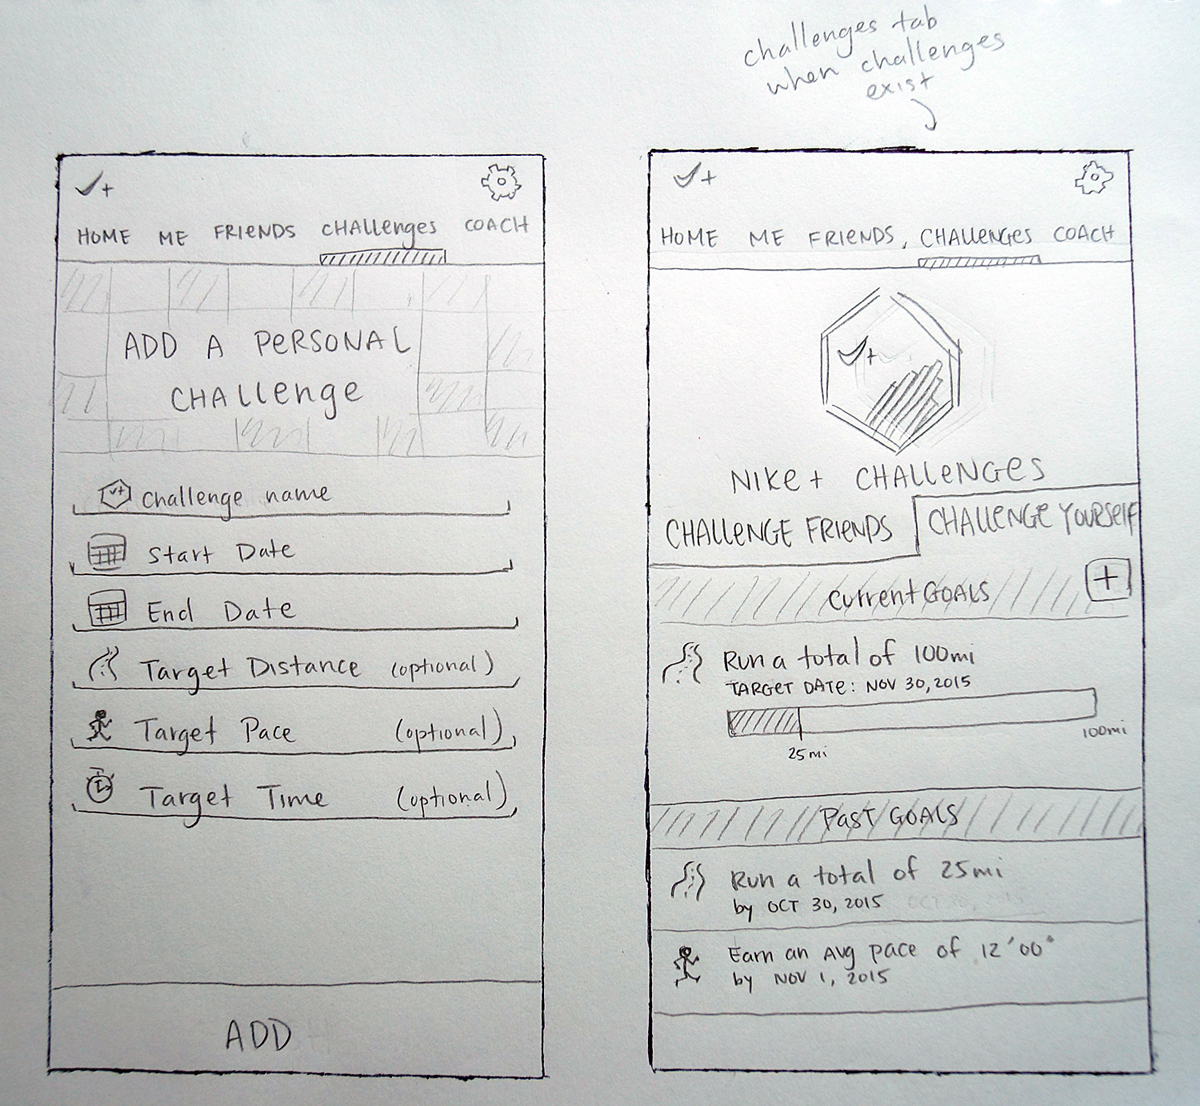 challenges tab
when challenges
exist
HOME ME FRIENDS CHALLENGES COACH
ADD A PERSONAL
CHALLENGE
Challenge name
Start Date
End Date
Target Distance (optional)
Target Pace (optional)
Target Time (optional)
ADD
HOME ME FRIENDS, CHALLENGES COACH
NIKE+ CHALLENGES
CHALLENGE FRIENDS CHALLENGE YOURSELF
Current GOALS +
Run a total of 100mi
TARGET DATE: NOV 30, 2015
25mi
100mi
PAST GOALS
Run a total of 25mi
by OCT 30, 2015
Earn an Avg pace of 12'00"
by NOV 1, 2015